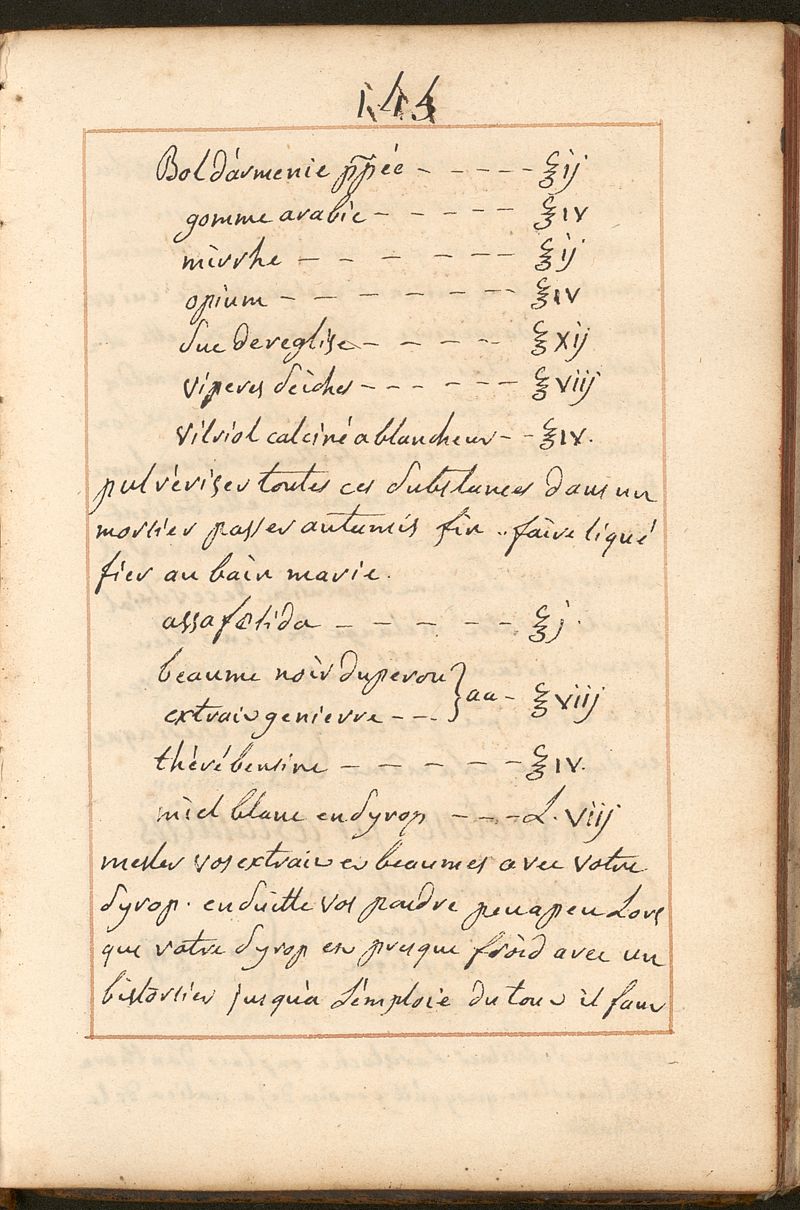 144
Bol d'armenie ppée - - - - - ℥ ij
gomme arabic - - - - - ℥ iv
mirrhe - - - - - - ℥ ij
opium - - - - - - - ℥ iv
suc de reglise - - - - ℥ xij
viperes seiches - - - - - - ℥ viij
vitriol calciné a blancheur - - ℥ iv.
pulvériser toutes ces substances dans un
mortier passer au tamis fin .. faire liqué
fier au bain marie.
assafœtida - - - - - ℥ j.
beaume noir du perou } aa - ℥ viij
extrait genievre - - -
thérébentine - - - - - ℥ iv.
miel blanc en syrop - - - L. viij
mesler vos extrait et beaumes avec votre
syrop. en suitte vos poudre peu a peu Lors
que votre syrop est presque froid avec un
bistortier jusqu'a L'emploie du tout il faut